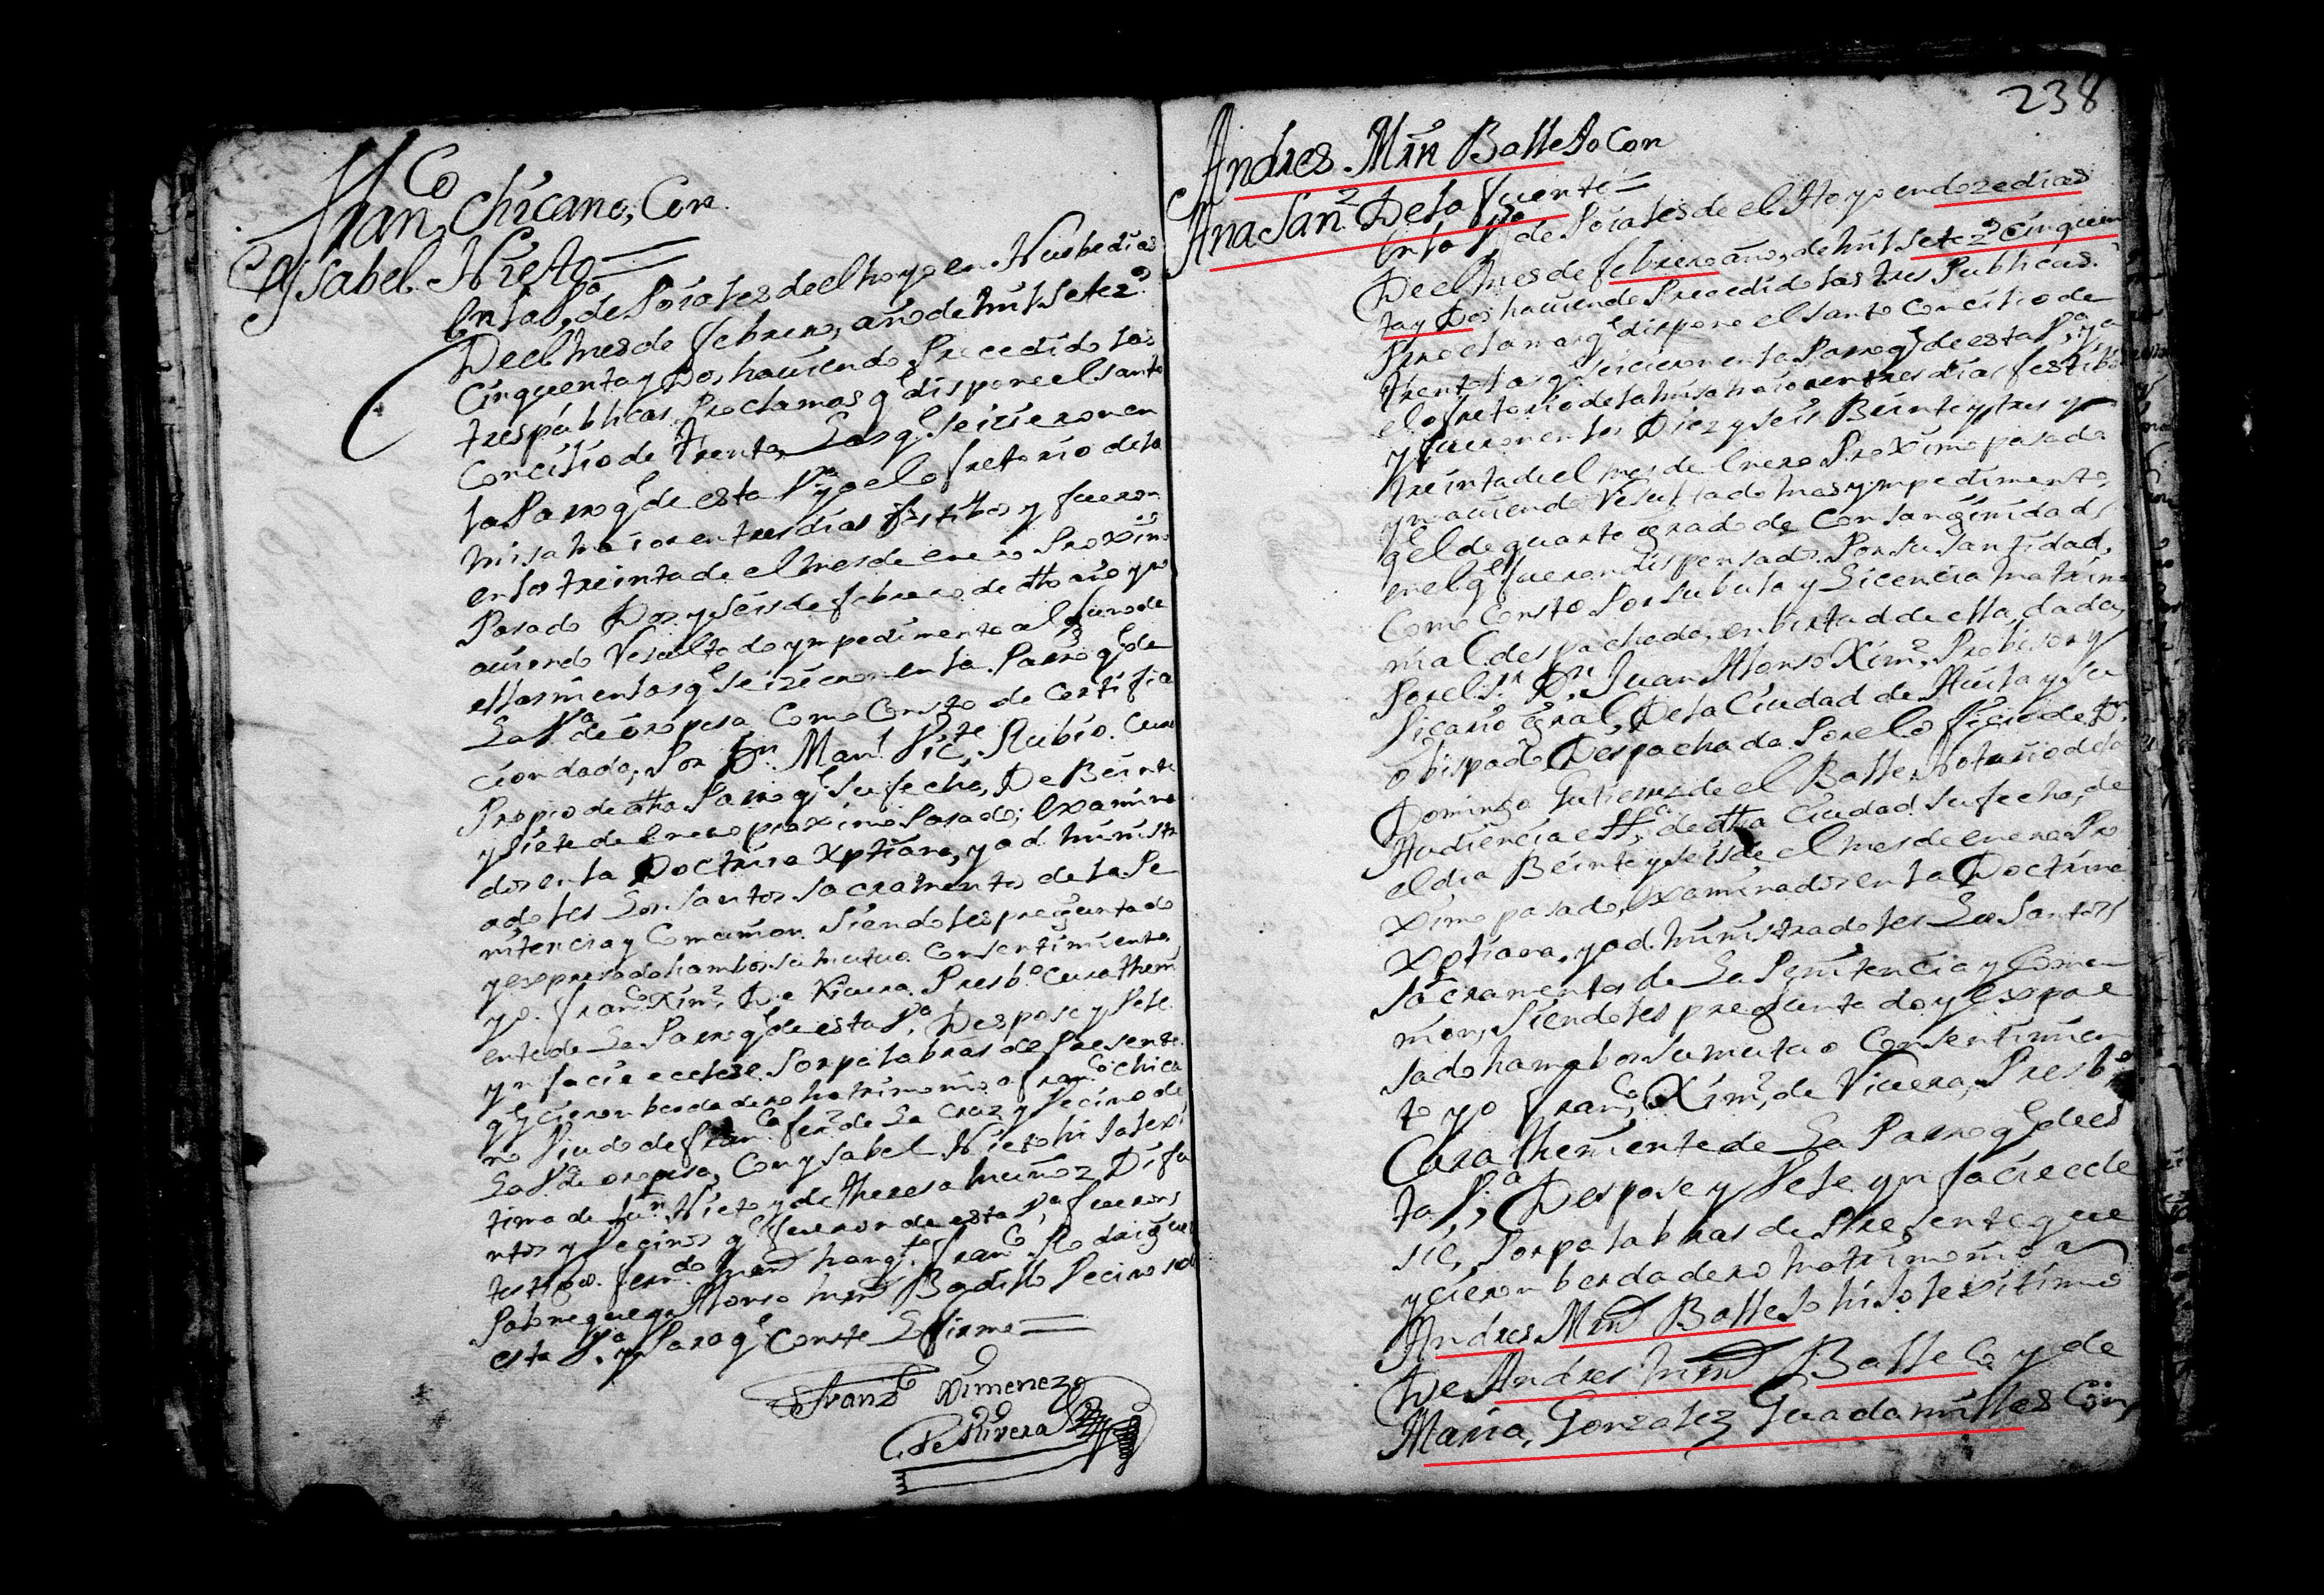 Fran,co Chicano, Con
Ysabel Nieto
En la V,a de Poiales de el hoyo en Nuebe dias
De el mes de febrero, año de mil setez.s
Cinquenta y Dos, hauiendo Precedido las
tres públicas Proclamas q.e dispone el santo
Concilio de trento, Las q.e se icieron en
la Parroq.l de esta V,a y a el ofretorio de la
Misa maior en tres dias festibos y fueron
en los treinta de el mes de enero Proximo
Pasado Dos y seis de febrero de dho año y no
auiendo Resultado ympedimento alguno de
ellas ni en las q.e se icieron en la Parroq.l de
La V,a de oropesa Como Consto de Certifica
cion dada, Por Dn. Man.l Vic.te Rubio. Cura
Propio de dha Parroq.l su fecha, De Beinte
y siete de Enero proximo Pasado; Examina
dos en la Doctrina Xptiana, y ad ministra
adoles Los santos sacramentos de la Pe
nitencia y Comunion. siendoles preguntado
y expresado hambos su mutuo Consentimiento.
yo. fran,co Xim.z De Riuera. Presb.o Cura theni
ente de La Parroq.l de esta V.a Despose y Vele.
yn facie eclesie Por palabras de Presente
q.e ycieron berdadero matrimonio a fran.co chica
no Viudo de fran.ca fer.z de La Cruz y Vecino de
La V.a de oropesa, Con ysabel Nieto hija lexi
tima de Ju.n Nieto y de theresa muñoz Difu
ntos y Vecinos q.e fueron de esta V,a fueron
testigos. fern.do fran.co Rodriguez
y Alonso Vecinos de
esta V.a y Para q.e Conste Lo firmo
Franz.co Ximenez
de Rivera
238
Andres Mrn Balleso Con
Ana San.z De la fuente
En la V,a de Poiales de el Hoyo en doze dias
De el mes de febrero año, de mil setez.s cinquen
ta y Dos hauiendo Precedido las tres Publicas
Proclamas q.e dispone el santo Concilio de
trento las q.e se icieron en la Parroq.l de esta V.a y a
el ofretorio de la misa maior en tres dias festibos
y fueron en los Diez y seis Beinte y tres y
treinta de el mes de Enero Proximo pasado
y no auiendo Resultado mas ympedimento,
q.e el de quarto grado de Consanginidad,
en el q.e fueron dispensados Por su santidad,
Como Consto Por su bula y Licencia matrimo
nial despachada, en birtud de ella, dada,
Por el s.r Dn. Juan Alonso Xim.z Probisor y
Vicario Gral, De la Ciudad de Auila y su
obispado Despachada Por el oficio de Dn.
Domingo Gutierrez de el Balle Notario de la
Audiencia de dha Ciudad su fecha, de
el dia Beinte y seis de el mes de enero Pro
ximo pasado, Examinados en la Doctrina
Xptiana, y ad ministradoles Los Santos
sacramentos de La Penitencia y Comu
nion, siendoles preguntado y Expre
sado hambos su mutuo Consentimien
to yo fran,co Xim.z de Riuera, Presb.o
Cura theniente de La Parroq.l de es
ta V.a Despose y Vele yn facie ecle
sie, Por palabras de Presente que
ycieron berdadero matrimonio a
Andres Mrn Balleso hijo lexitimo
De Andres Mrn Balleso y de
Maria, Gonzalez Guadamillas Con,